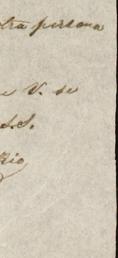 otra persona
e V. se
S.S.
Rio